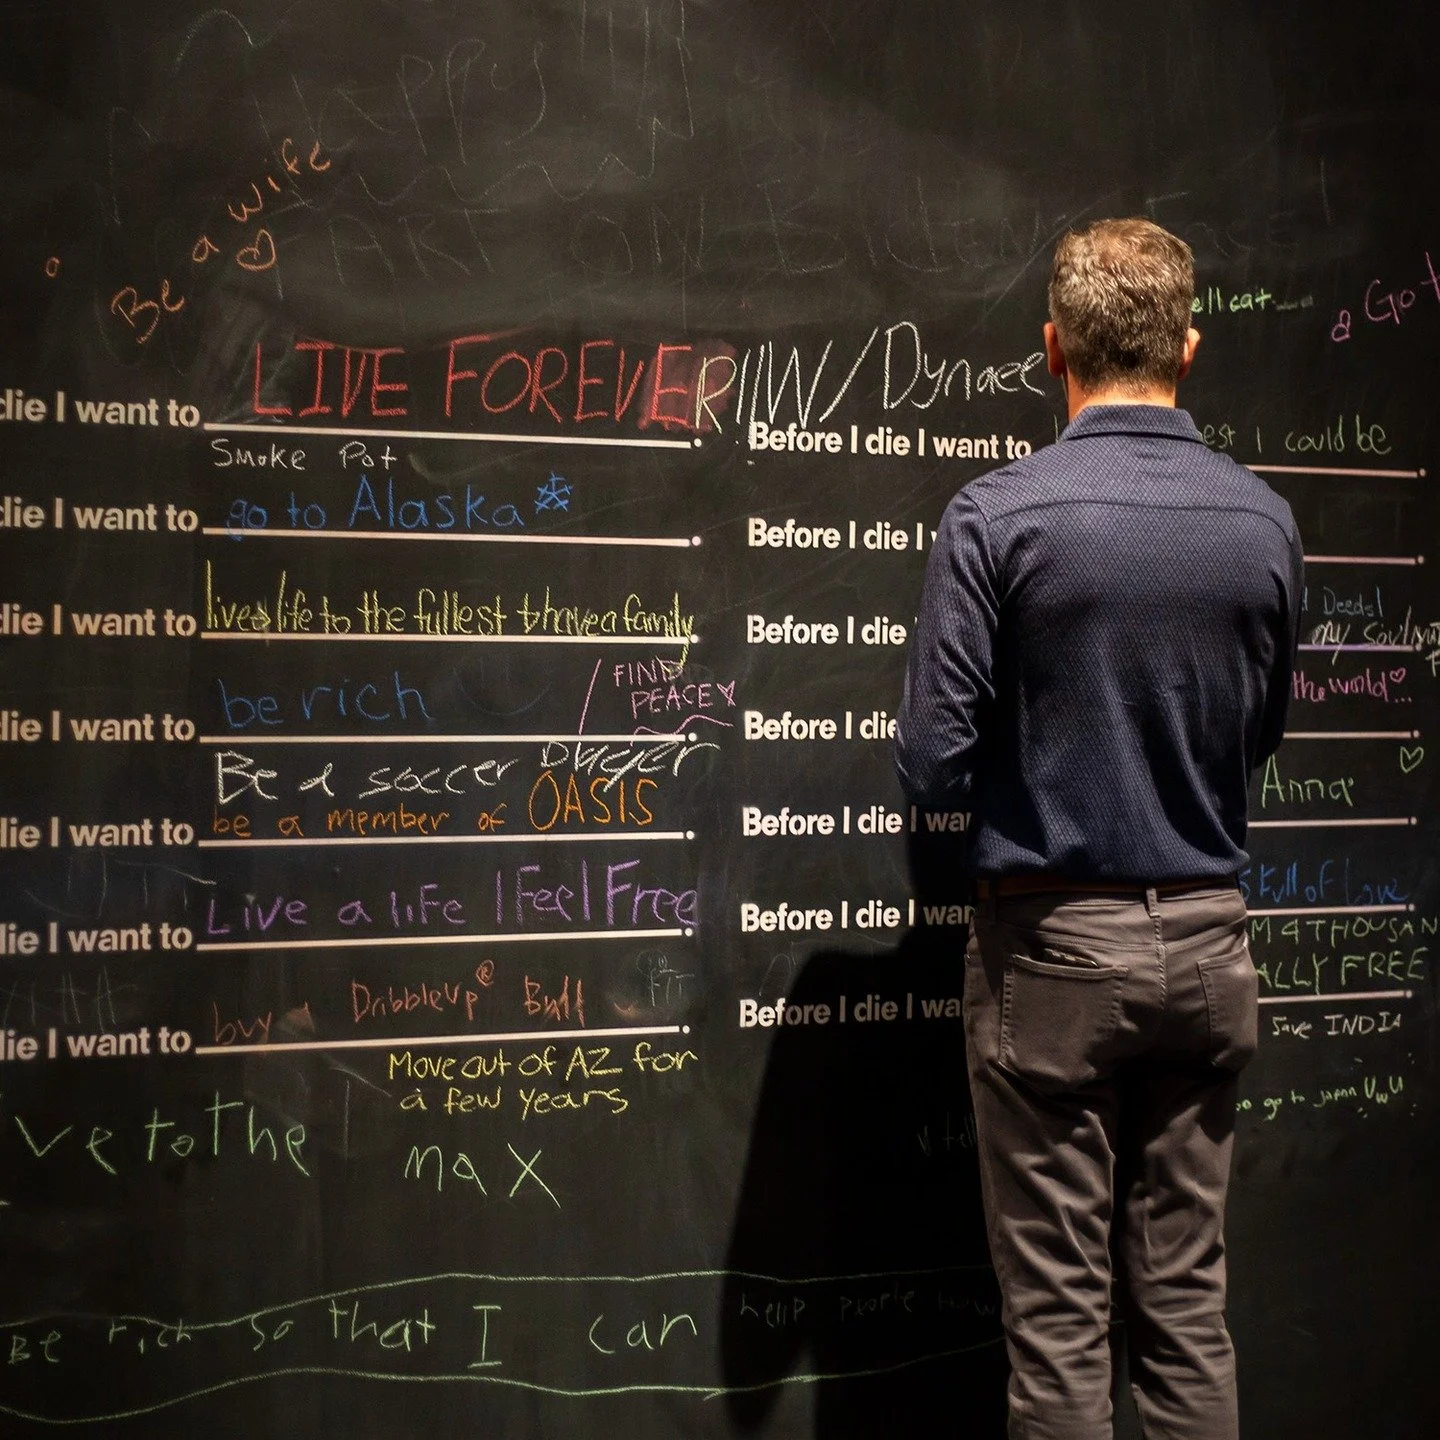 Be a wife
LIVE FOREVER
die I want to
Smoke Pot
die I want to go to Alaska
live life to the fullest & have a family
die I want to
be rich / FIND
PEACE
die I want to
Be a soccer player
be a member of OASIS
die I want to
Live a life I Feel Free
die I want to
buy a DribbleUp® Ball
die I want to
Move out of AZ for
a few years
ve to the max
Be rich so that I can help people
ell cat
a Got
/Dynaee
Before I die I want to
est I could be
Before I die I
Before I die
Deeds!
my
the world...
Before I die
Anna
Before I die I wa
s full of love
Before I die I wa
M 4 THOUSAN
ALLY FREE
Before I die I wa
Save INDIA
go to japan UwU